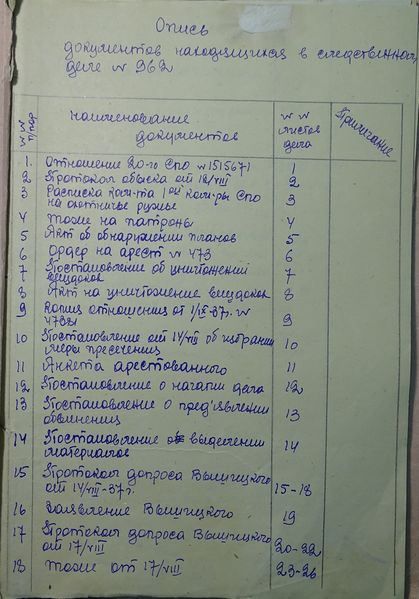 Опись
документов находящихся в следственном
деле № 962
№№ п/пор
наименование
документов
№ №
листов
дела
Примечание
1. Отношение 20-го СПО № 1515671 1
2 Протокол обыска от 12/VIII 2
3 Расписка ком-та 1ой ком-ры СПО
на охотничье ружье 3
4 Тоже на патроны 4
5 Акт об обнаружении планов 5
6 Ордер на арест № 473 6
7 Постановление об уничтожении
вещдоков 7
8 Акт на уничтожение вещдоков 8
9 Копия отношения от 1/IX-37г. №
9
10 Постановление от 14/VIII об избрании
меры пресечения 10
11 Анкета арестованного 11
12 Постановление о начатии дела 12
13 Постановление о предъявлении
обвинения 13
14 Постановление о выделении
материалов 14
15 Протокол допроса
от 14/VIII-37г. 15-18
16 Заявление 19
17 Протокол допроса
от 17/VIII 20-22
18 Тоже от 17/VIII 23-26